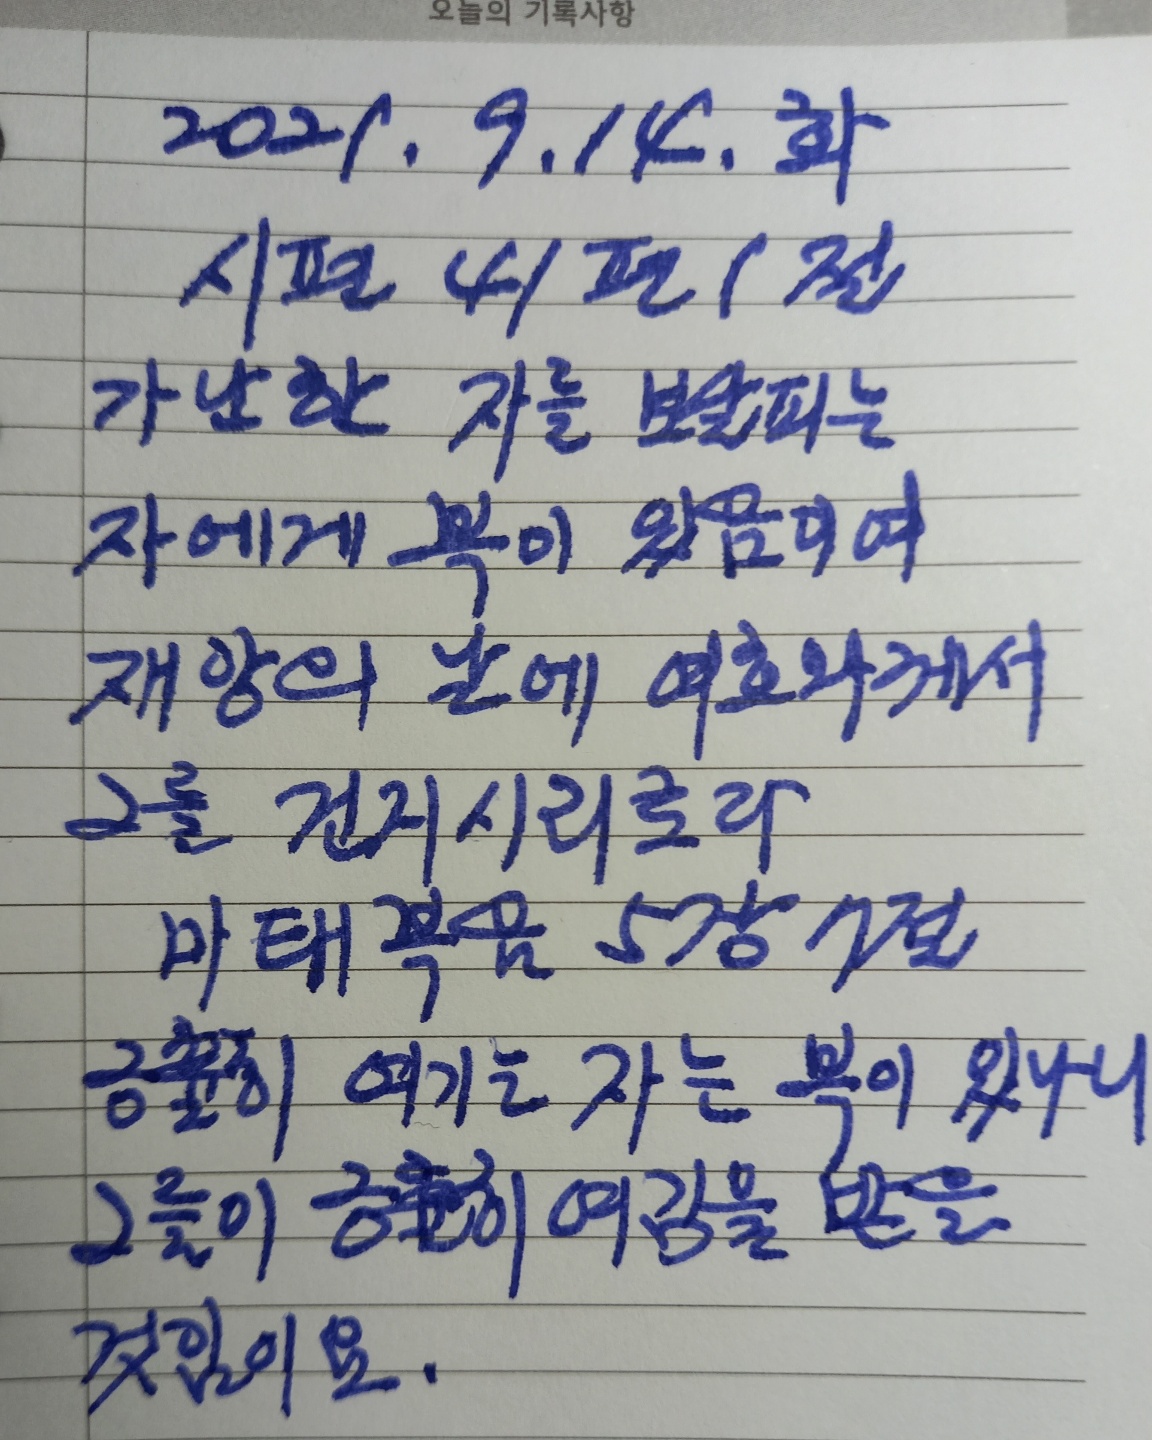 오늘의 기록사항
2021. 9. 14. 화
시편 41편 1절
가난한 자를 보살피는
자에게 복이 있음이여
재앙의 날에 여호와께서
그를 건지시리로다
마태복음 5장 7절
긍휼히 여기는 자는 복이 있나니
그들이 긍휼히 여김을 받을
것임이요.